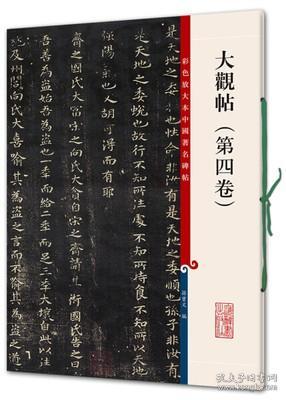 大觀帖（第四卷）
彩色放大本中國著名碑帖
孫寶文 編
天地之委和也性命非汝有是天地之委順也孫子非汝有
是天地之委蛻也故行不知所往處不知所持食不知所以天地
强陽氣也又胡可得而有耶
齊之國氏大富宋之向氏大貧自宋之齊請其術國氏告之曰
吾善為盗始吾為盗也一年而給二年而足三年大壤自此以
施及州閭向氏大喜喻其為盗之言而不喻其為盗之道